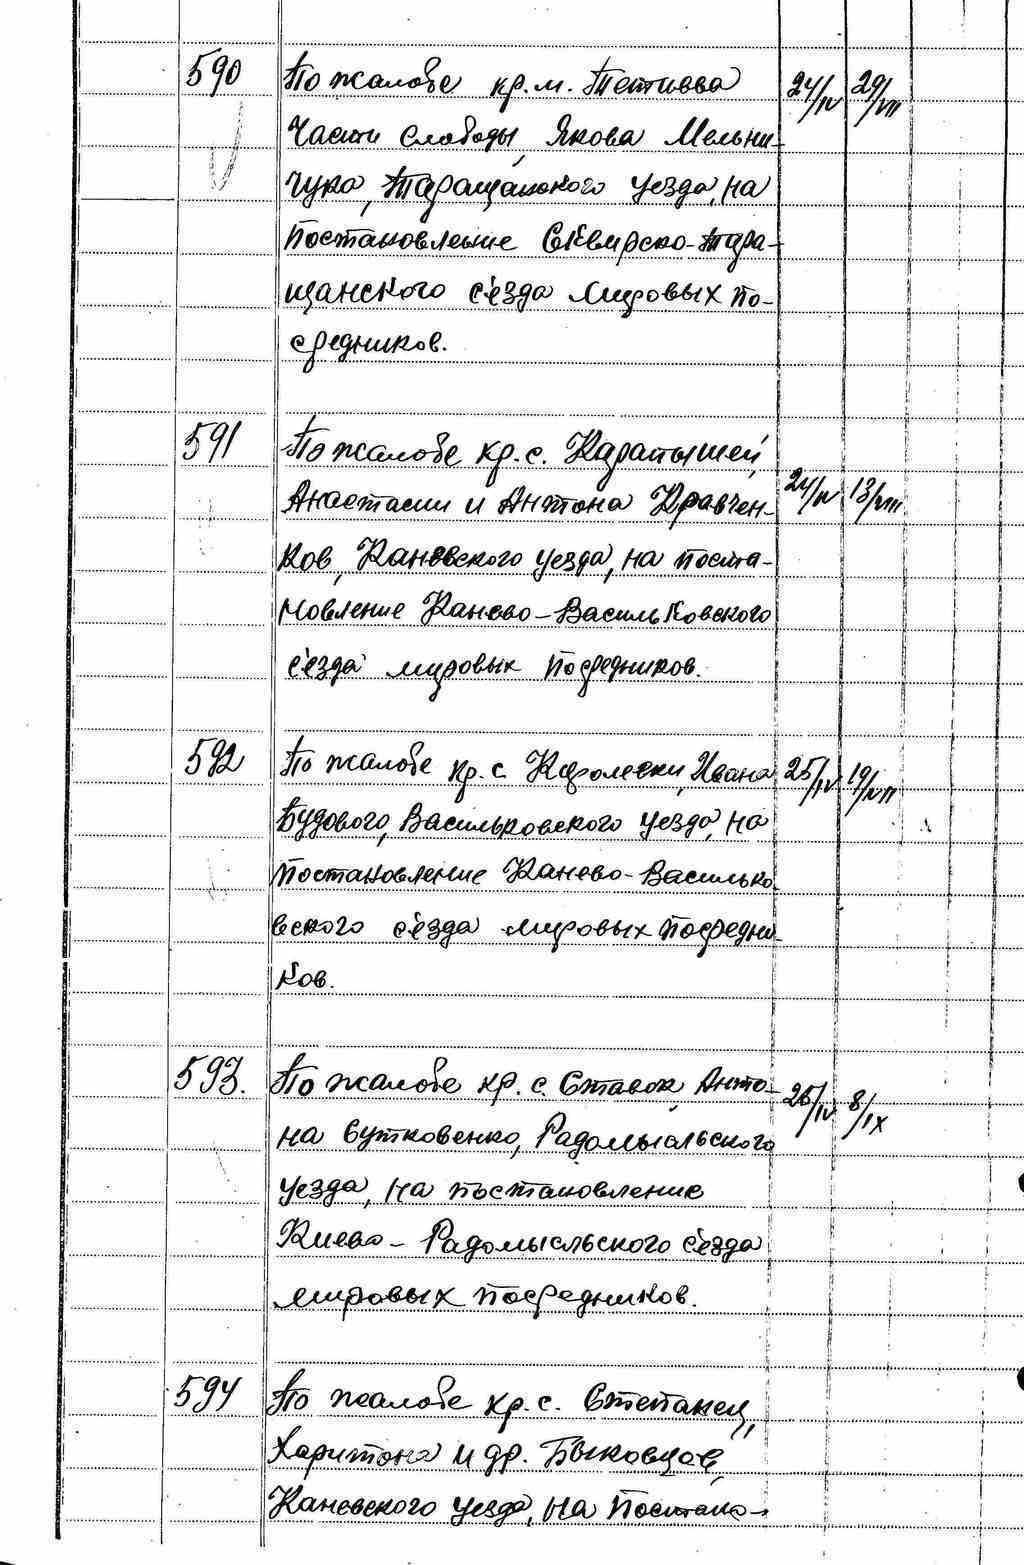 590 По жалобе кр. м. Тетиева 24/IV 29/VII
Части Слободы, Якова Мельни-
чука, Таращанского уезда, на
постановление Сквирско-Тара-
щанского с'езда мировых по-
средников.
591 По жалобе кр. с. Карапышей,
Анастасии и Антона Кравчен- 24/IV 13/VIII
ков, Каневского уезда, на поста-
новление Канево-Васильковского
с'езда мировых посредников.
592 По жалобе кр. с. Кфолевки, Ивана 25/IV 19/VII
Будового, Васильковского уезда, на
постановление Канево-Василько-
вского с'езда мировых посредни-
ков.
593. По жалобе кр. с. Ставок, Анто- 26/IV 8/IX
на Сутковенко, Радомысльского
уезда, на постановление
Киево-Радомысльского с'езда
мировых посредников.
594 По жалобе кр. с. Степанец,
Харитона и др. Быковцов,
Каневского уезда, на постано-